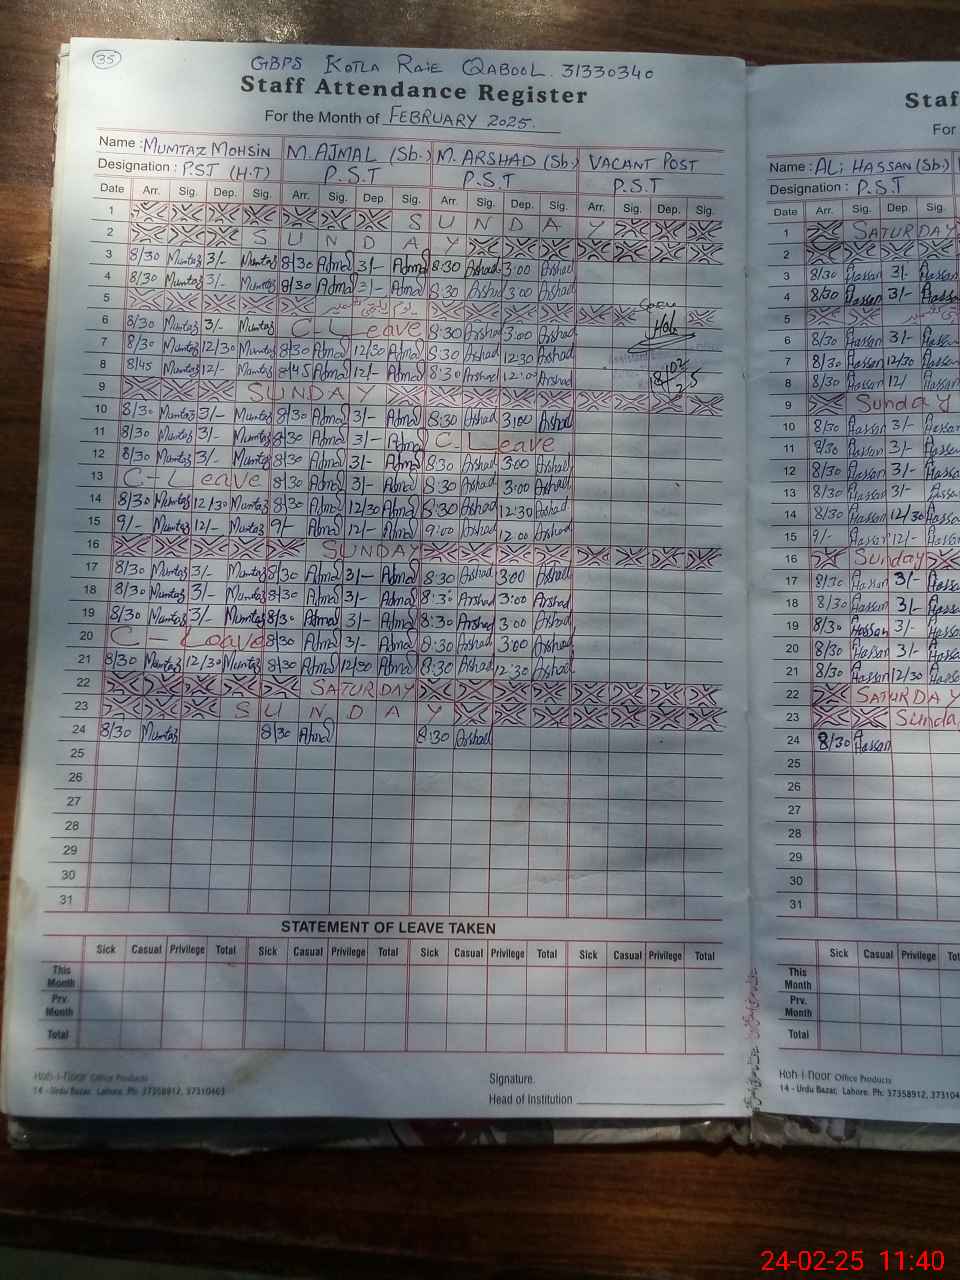 35
GBPS KOTLA RAIE QABOOL. 31330340
Staff Attendance Register
For the Month of FEBRUARY 2025.
Name : MUMTAZ MOHSIN M. AJMAL (Sb.) M. ARSHAD (Sb.) VACANT POST
Designation : P.ST (H.T) P.S.T P.S.T P.S.T
Date Arr. Sig. Dep. Sig. Arr. Sig. Dep. Sig. Arr. Sig. Dep. Sig. Arr. Sig. Dep. Sig.
1 SUNDAY
2 SUNDAY
3 8/30 Mumtaz 3/- Mumtaz 8/30 Ajmal 3/- Ajmal 8:30 Arshad 3:00 Arshad
4 8/30 Mumtaz 3/- Mumtaz 8/30 Ajmal 3/- Ajmal 8:30 Arshad 3:00 Arshad
5
6 8/30 Mumtaz 3/- Mumtaz C-Leave 8:30 Arshad 3:00 Arshad
7 8/30 Mumtaz 12/30 Mumtaz 8/30 Ajmal 12/30 Ajmal 8:30 Arshad 12:30 Arshad
8 8/45 Mumtaz 12/- Mumtaz 8/45 Ajmal 12/- Ajmal 8:30 Arshad 12:00 Arshad
9 SUNDAY
10 8/30 Mumtaz 3/- Mumtaz 8/30 Ajmal 3/- Ajmal 8:30 Arshad 3:00 Arshad
11 8/30 Mumtaz 3/- Mumtaz 8/30 Ajmal 3/- Ajmal C-Leave
12 8/30 Mumtaz 3/- Mumtaz 8/30 Ajmal 3/- Ajmal 8:30 Arshad 3:00 Arshad
13 C-Leave 8/30 Ajmal 3/- Ajmal 8:30 Arshad 3:00 Arshad
14 8/30 Mumtaz 12/30 Mumtaz 8/30 Ajmal 12/30 Ajmal 8:30 Arshad 12:30 Arshad
15 9/- Mumtaz 12/- Mumtaz 9/- Ajmal 12/- Ajmal 9:00 Arshad 12:00 Arshad
16 SUNDAY
17 8/30 Mumtaz 3/- Mumtaz 8/30 Ajmal 3/- Ajmal 8:30 Arshad 3:00 Arshad
18 8/30 Mumtaz 3/- Mumtaz 8/30 Ajmal 3/- Ajmal 8:30 Arshad 3:00 Arshad
19 8/30 Mumtaz 3/- Mumtaz 8/30 Ajmal 3/- Ajmal 8:30 Arshad 3:00 Arshad
20 C-Leave 8/30 Ajmal 3/- Ajmal 8:30 Arshad 3:00 Arshad
21 8/30 Mumtaz 12/30 Mumtaz 8/30 Ajmal 12/30 Ajmal 8:30 Arshad 12:30 Arshad
22 SATURDAY
23 SUNDAY
24 8/30 Mumtaz 8/30 Ajmal 8:30 Arshad
25
26
27
28
29
30
31
STATEMENT OF LEAVE TAKEN
Sick Casual Privilege Total Sick Casual Privilege Total Sick Casual Privilege Total Sick Casual Privilege Total
This Month
Prv. Month
Total
Koh-i-noor Office Products
14 - Urdu Bazar, Lahore. Ph: 37358912, 37310463
Signature.
Head of Institution
Staf
For
Name : ALi HASSAN (Sb.)
Designation : P.S.T
Date Arr. Sig. Dep. Sig.
1 SATURDAY
2
3 8/30 Hassan 3/- Hassan
4 8/30 Hassan 3/- Hassan
5
6 8/30 Hassan 3/- Hassan
7 8/30 Hassan 12/30 Hassan
8 8/30 Hassan 12/ Hassan
9 Sunday
10 8/30 Hassan 3/- Hassan
11 8/30 Hassan 3/- Hassan
12 8/30 Hassan 3/- Hassan
13 8/30 Hassan 3/- Hassan
14 8/30 Hassan 12/30 Hassan
15 9/- Hassan 12/- Hassan
16 Sunday
17 8/30 Hassan 3/- Hassan
18 8/30 Hassan 3/- Hassan
19 8/30 Hassan 3/- Hassan
20 8/30 Hassan 3/- Hassan
21 8/30 Hassan 12/30 Hassan
22 SATURDAY
23 Sunda
24 8/30 Hassan
25
26
27
28
29
30
31
Sick Casual Privilege Tot
This Month
Prv. Month
Total
Koh-i-noor Office Products
14 - Urdu Bazar, Lahore. Ph: 37358912, 373104
24-02-25 11:40